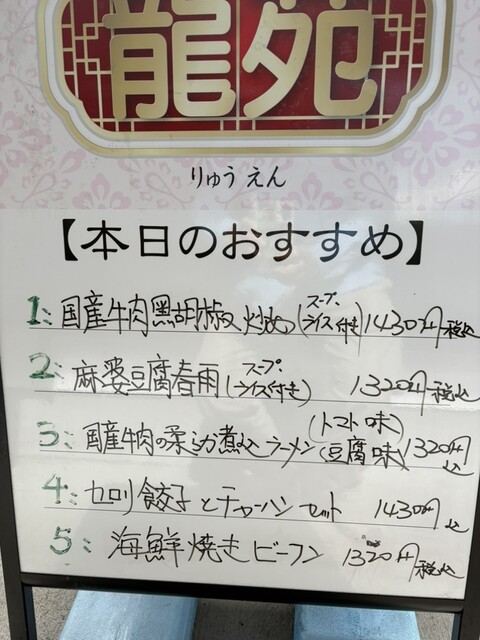 龍苑
りゅうえん
【本日のおすすめ】
1: 国産牛肉黒胡椒炒め(スープ・ライス付き) 1430円税込
2: 麻婆豆腐春雨(スープ・ライス付き) 1320円税込
3: 国産牛肉の柔らか煮込ラーメン(トマト味)(豆腐味) 1320円込
4: セロリ餃子とチャーハンセット 1430円込
5: 海鮮焼きビーフン 1320円税込